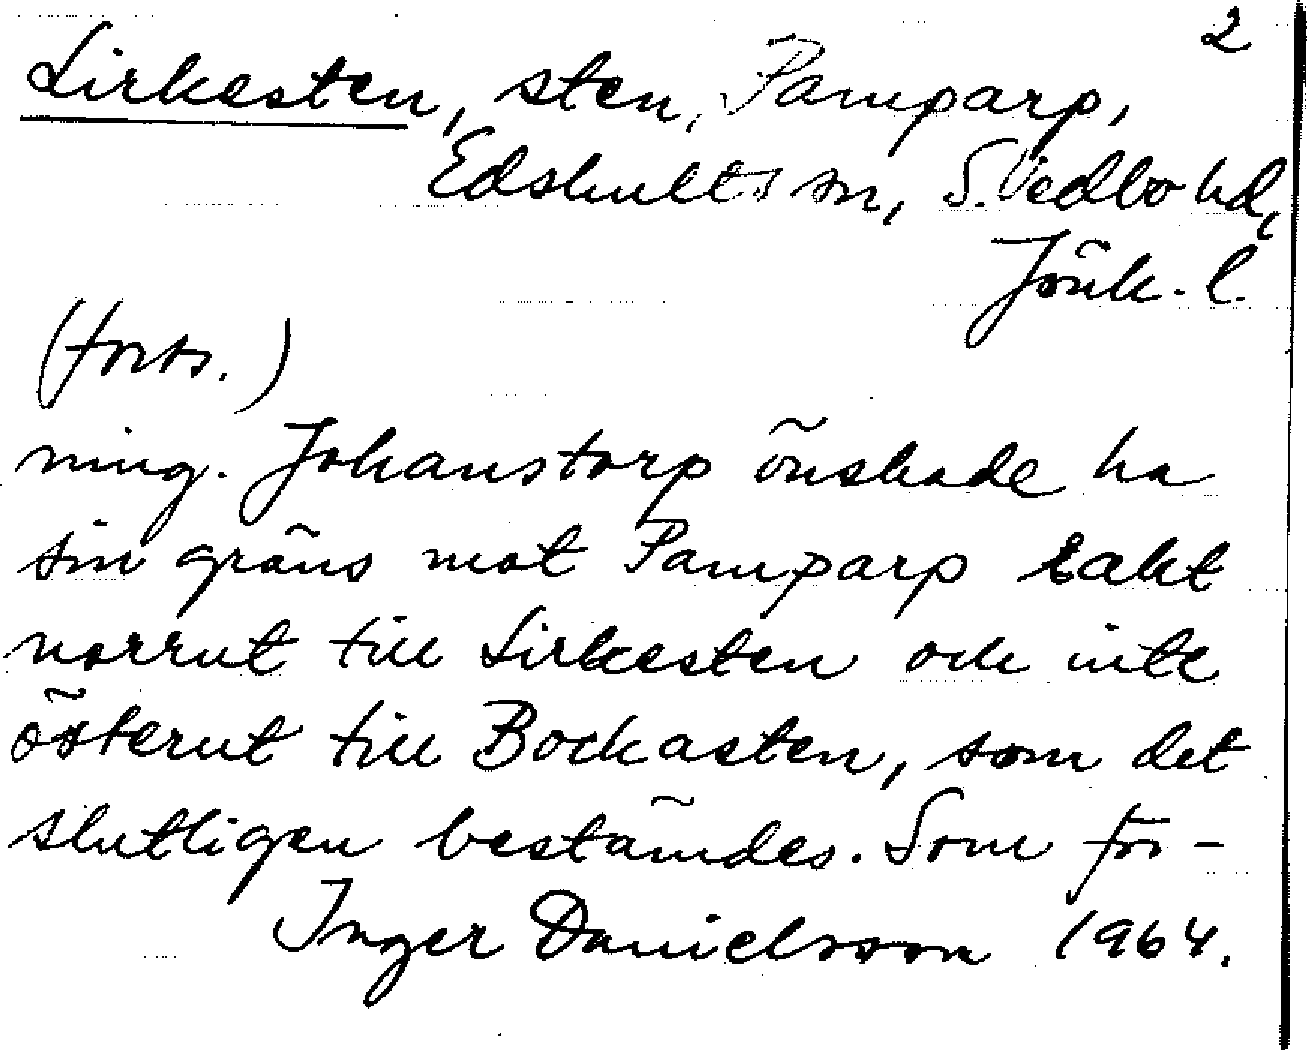 2
Lirkesten, sten, Pamparp,
Edshults sn, S. Vedbo hd,
Jönk. l.
(forts.)
ning. Johanstorp önskade ha
sin gräns mot Pamparp rakt
norrut till Lirkesten och inte
österut till Bockasten, som det
slutligen bestämdes. Som för-
Inger Danielsson 1964.